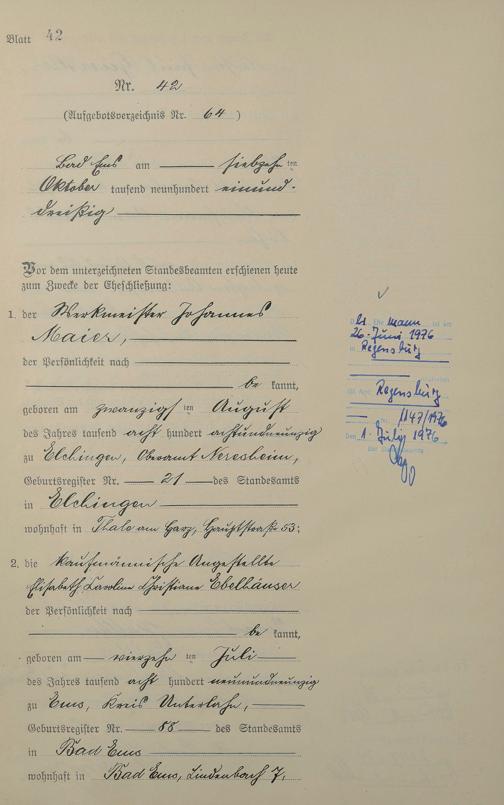 Blatt 42
Nr. 42
(Aufgebotsverzeichnis Nr. 64)
Bad Ems am siebzehnten
Oktober tausend neunhundert einund-
dreißig
Vor dem unterzeichneten Standesbeamten erschienen heute
zum Zwecke der Eheschließung:
1. der Werkmeister Johannes
Maier,
der Persönlichkeit nach
be kannt,
geboren am zwanzigsten August
des Jahres tausend acht hundert achtundneunzig
zu Elchingen, Oberamt Neresheim,
Geburtsregister Nr. 21 des Standesamts
in Elchingen
wohnhaft in Thale am Harz, Hauptstraße 53;
2. die kaufmännische Angestellte
Elisabeth Caroline Christiane Ebelhäuser
der Persönlichkeit nach
be kannt,
geboren am vierzehnten Juli
des Jahres tausend acht hundert neunundneunzig
zu Ems, Kreis Unterlahn,
Geburtsregister Nr. 88 des Standesamts
in Bad Ems
wohnhaft in Bad Ems, Lindenbach 7,
Ehemann ist am
26. Juni 1976
in Regensburg
Regensburg
1147/1976
Den 1. July 1976